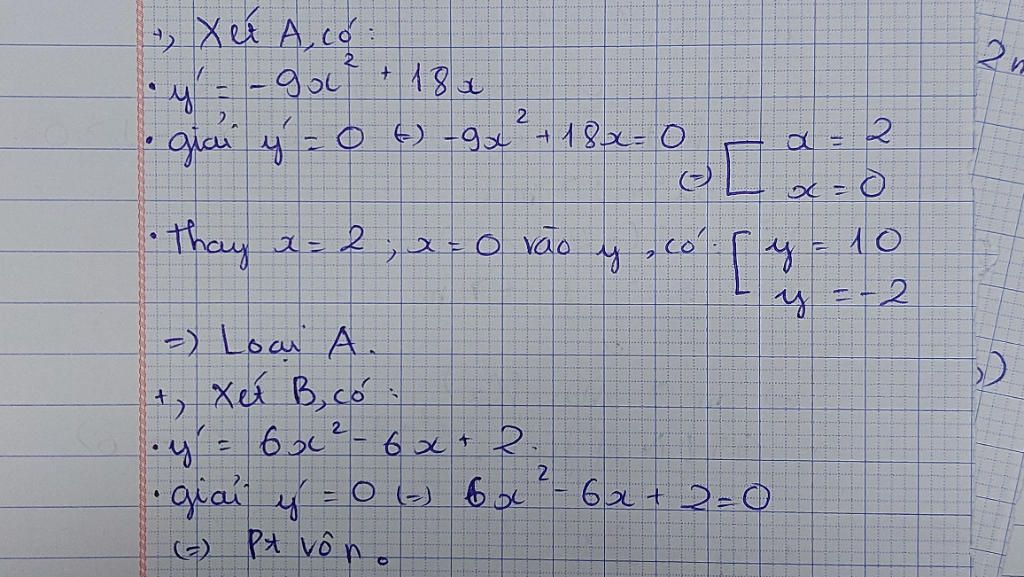 +, Xét A, có:
• y' = -9x² + 18x
• giải y' = 0 (=) -9x² + 18x = 0
(=) [ x = 2
x = 0
• Thay x = 2 ; x = 0 vào y, có: [ y = 10
y = -2
=) Loại A.
+, Xét B, có:
• y' = 6x² - 6x + 2.
• giải y' = 0 (=) 6x² - 6x + 2 = 0
(=) Pt vô n₀